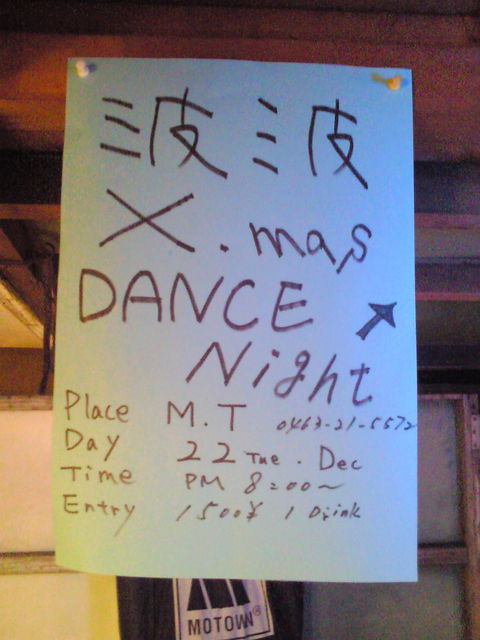 波波
X.mas
DANCE
Night
Place M.T 0463-21-5572
Day 22 Tue. Dec
Time PM 8:00~
Entry 1500¥ 1 Drink
MOTOWN®